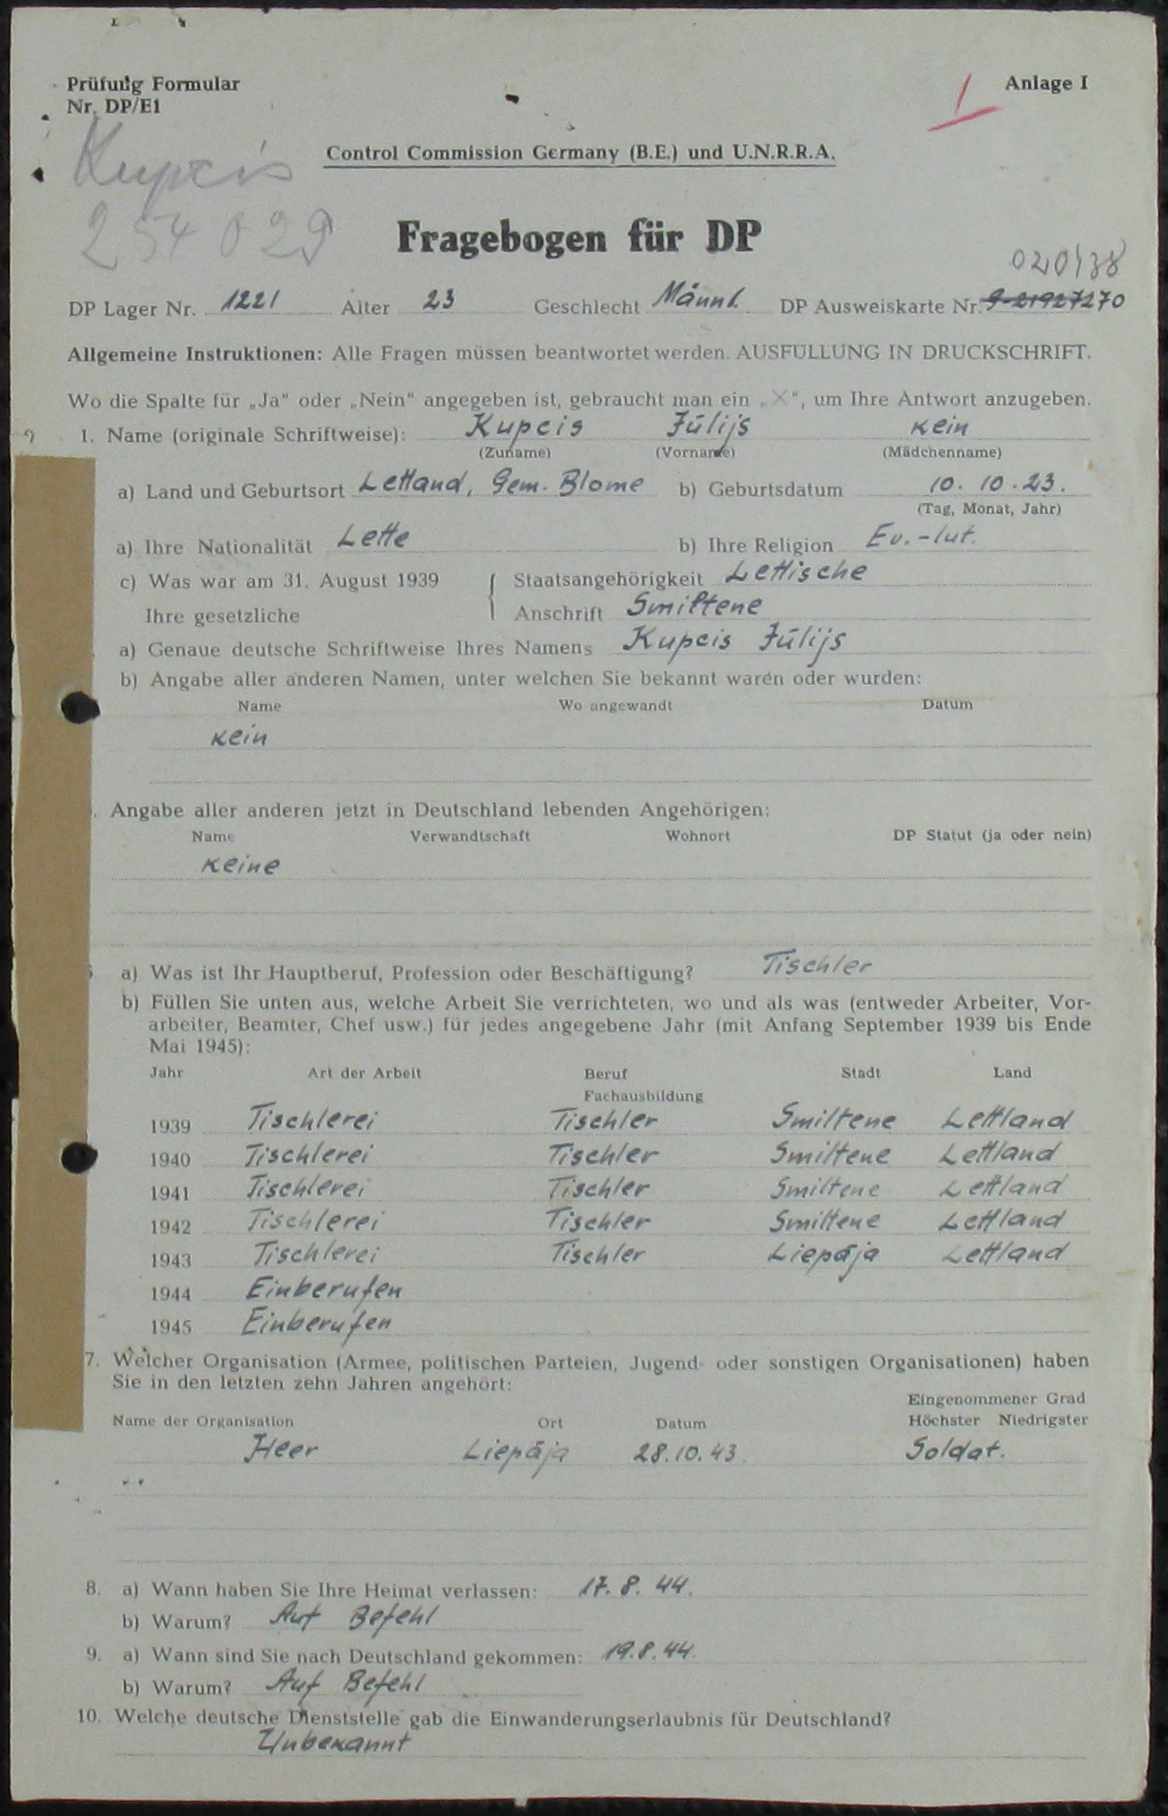 Prüfung Formular
Anlage I
Nr. DP/E1
Kupcis
Control Commission Germany (B.E.) und U.N.R.R.A.
254 029
Fragebogen für DP
020138
DP Lager Nr. 1221 Alter 23 Geschlecht Männl. DP Ausweiskarte Nr.
Allgemeine Instruktionen: Alle Fragen müssen beantwortet werden. AUSFÜLLUNG IN DRUCKSCHRIFT.
Wo die Spalte für „Ja“ oder „Nein“ angegeben ist, gebraucht man ein „X“, um Ihre Antwort anzugeben.
1. Name (originale Schriftweise): Kupcis Jūlijs kein
(Zuname) (Vorname) (Mädchenname)
a) Land und Geburtsort Lettland, Gem. Blome b) Geburtsdatum 10. 10. 23.
(Tag, Monat, Jahr)
a) Ihre Nationalität Lette b) Ihre Religion Ev.-lut.
c) Was war am 31. August 1939 { Staatsangehörigkeit Lettische
Ihre gesetzliche Anschrift Smiltene
a) Genaue deutsche Schriftweise Ihres Namens Kupcis Jūlijs
b) Angabe aller anderen Namen, unter welchen Sie bekannt waren oder wurden:
Name Wo angewandt Datum
kein
Angabe aller anderen jetzt in Deutschland lebenden Angehörigen:
Name Verwandtschaft Wohnort DP Statut (ja oder nein)
keine
a) Was ist Ihr Hauptberuf, Profession oder Beschäftigung? Tischler
b) Füllen Sie unten aus, welche Arbeit Sie verrichteten, wo und als was (entweder Arbeiter, Vor-
arbeiter, Beamter, Chef usw.) für jedes angegebene Jahr (mit Anfang September 1939 bis Ende
Mai 1945):
Jahr Art der Arbeit Beruf Stadt Land
Fachausbildung
1939 Tischlerei Tischler Smiltene Lettland
1940 Tischlerei Tischler Smiltene Lettland
1941 Tischlerei Tischler Smiltene Lettland
1942 Tischlerei Tischler Smiltene Lettland
1943 Tischlerei Tischler Liepāja Lettland
1944 Einberufen
1945 Einberufen
7. Welcher Organisation (Armee, politischen Parteien, Jugend- oder sonstigen Organisationen) haben
Sie in den letzten zehn Jahren angehört:
Eingenommener Grad
Name der Organisation Ort Datum Höchster Niedrigster
Heer Liepāja 28.10.43. Soldat.
8. a) Wann haben Sie Ihre Heimat verlassen: 17. 8. 44.
b) Warum? Auf Befehl
9. a) Wann sind Sie nach Deutschland gekommen: 19. 8. 44.
b) Warum? Auf Befehl
10. Welche deutsche Dienststelle gab die Einwanderungserlaubnis für Deutschland?
Unbekannt